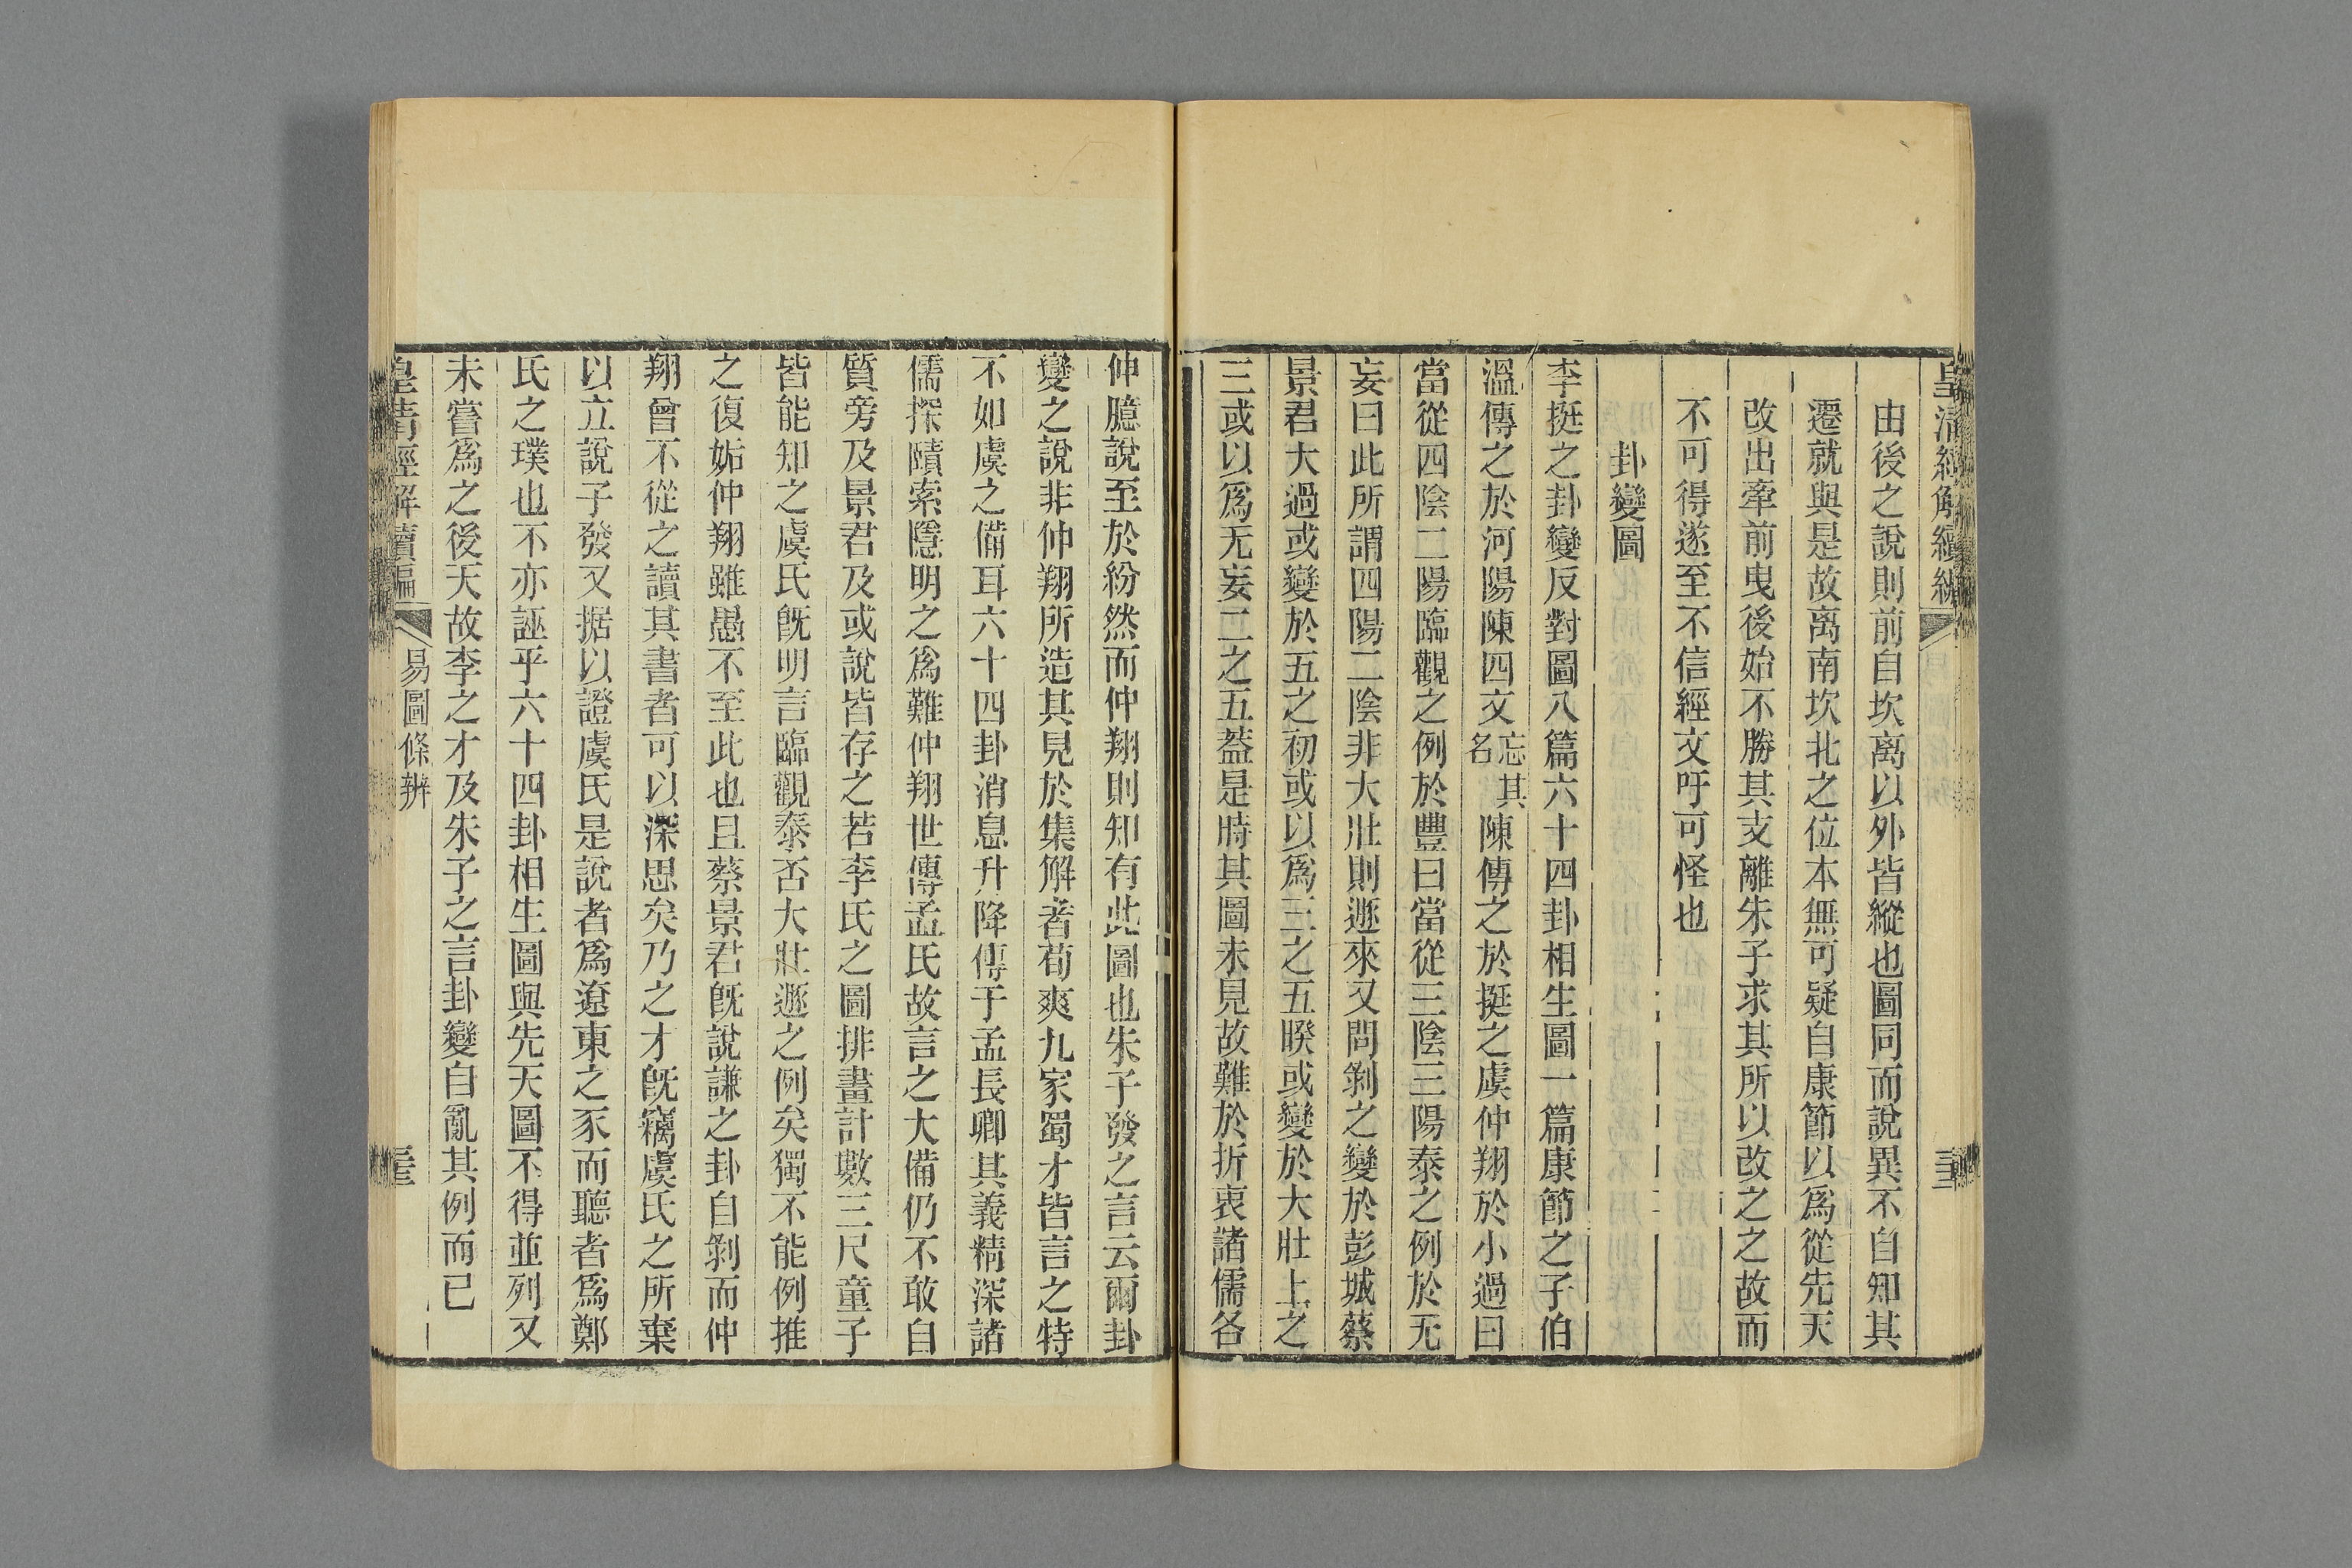 皇清經解續編
由後之說則前自坎离以外皆縱也圖同而說異不自知其
遷就與是故离南坎北之位本無可疑自康節以爲從先天
改出牽前曳後始不勝其支離朱子求其所以改之之故而
不可得遂至不信經文吁可怪也
卦變圖
李挺之卦變反對圖八篇六十四卦相生圖一篇康節之子伯
溫傳之於河陽陳四丈忘其名陳傳之於挺之虞仲翔於小過曰
當從四陰二陽臨觀之例於豐曰當從三陰三陽泰之例於无
妄曰此所謂四陽二陰非大壯則遯來又問剝之變於彭城蔡
景君大過或變於五之初或以爲三之五睽或變於大壯上之
三或以爲无妄二之五葢是時其圖未見故難於折衷諸儒各
仲臆說至於紛然而仲翔則知有此圖也朱子發之言云爾卦
變之說非仲翔所造其見於集解者荀爽九家蜀才皆言之特
不如虞之備耳六十四卦消息升降傳于孟長卿其義精深諸
儒探賾索隱明之爲難仲翔世傳孟氏故言之大備仍不敢自
質旁及景君及或說皆存之若李氏之圖排畫計數三尺童子
皆能知之虞氏旣明言臨觀泰否大壯遯之例矣獨不能例推
之復姤仲翔雖愚不至此也且蔡景君旣說謙之卦自剝而仲
翔曾不從之讀其書者可以深思矣乃之才旣竊虞氏之所棄
以立說子發又据以證虞氏是說者爲遼東之豕而聽者爲鄭
氏之璞也不亦誣乎六十四卦相生圖與先天圖不得並列又
未嘗爲之後天故李之才及朱子之言卦變自亂其例而已
皇清經解續編
易圖條辨